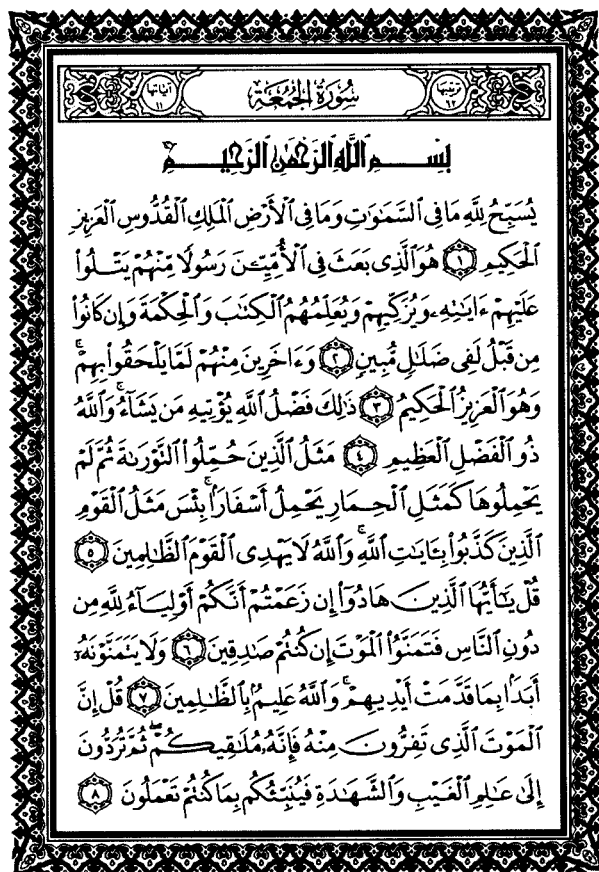 ترتيبها ٦٢ سُورَةُ الْجُمُعَةِ آياتها ١١
بِسْمِ ٱللَّهِ ٱلرَّحْمَٰنِ ٱلرَّحِيمِ
يُسَبِّحُ لِلَّهِ مَا فِى ٱلسَّمَٰوَٰتِ وَمَا فِى ٱلْأَرْضِ ٱلْمَلِكِ ٱلْقُدُّوسِ ٱلْعَزِيزِ
ٱلْحَكِيمِ ١ هُوَ ٱلَّذِى بَعَثَ فِى ٱلْأُمِّيِّـۧنَ رَسُولًا مِّنْهُمْ يَتْلُوا۟
عَلَيْهِمْ ءَايَٰتِهِۦ وَيُزَكِّيهِمْ وَيُعَلِّمُهُمُ ٱلْكِتَٰبَ وَٱلْحِكْمَةَ وَإِن كَانُوا۟
مِن قَبْلُ لَفِى ضَلَٰلٍ مُّبِينٍ ٢ وَءَاخَرِينَ مِنْهُمْ لَمَّا يَلْحَقُوا۟ بِهِمْ ۚ
وَهُوَ ٱلْعَزِيزُ ٱلْحَكِيمُ ٣ ذَٰلِكَ فَضْلُ ٱللَّهِ يُؤْتِيهِ مَن يَشَآءُ ۚ وَٱللَّهُ
ذُو ٱلْفَضْلِ ٱلْعَظِيمِ ٤ مَثَلُ ٱلَّذِينَ حُمِّلُوا۟ ٱلتَّوْرَىٰةَ ثُمَّ لَمْ
يَحْمِلُوهَا كَمَثَلِ ٱلْحِمَارِ يَحْمِلُ أَسْفَارًۢا ۚ بِئْسَ مَثَلُ ٱلْقَوْمِ
ٱلَّذِينَ كَذَّبُوا۟ بِـَٔايَٰتِ ٱللَّهِ ۚ وَٱللَّهُ لَا يَهْدِى ٱلْقَوْمَ ٱلظَّٰلِمِينَ ٥
قُلْ يَٰٓأَيُّهَا ٱلَّذِينَ هَادُوٓا۟ إِن زَعَمْتُمْ أَنَّكُمْ أَوْلِيَآءُ لِلَّهِ مِن
دُونِ ٱلنَّاسِ فَتَمَنَّوُا۟ ٱلْمَوْتَ إِن كُنتُمْ صَٰدِقِينَ ٦ وَلَا يَتَمَنَّوْنَهُۥٓ
أَبَدًۢا بِمَا قَدَّمَتْ أَيْدِيهِمْ ۚ وَٱللَّهُ عَلِيمٌۢ بِٱلظَّٰلِمِينَ ٧ قُلْ إِنَّ
ٱلْمَوْتَ ٱلَّذِى تَفِرُّونَ مِنْهُ فَإِنَّهُۥ مُلَٰقِيكُمْ ۖ ثُمَّ تُرَدُّونَ
إِلَىٰ عَٰلِمِ ٱلْغَيْبِ وَٱلشَّهَٰدَةِ فَيُنَبِّئُكُم بِمَا كُنتُمْ تَعْمَلُونَ ٨